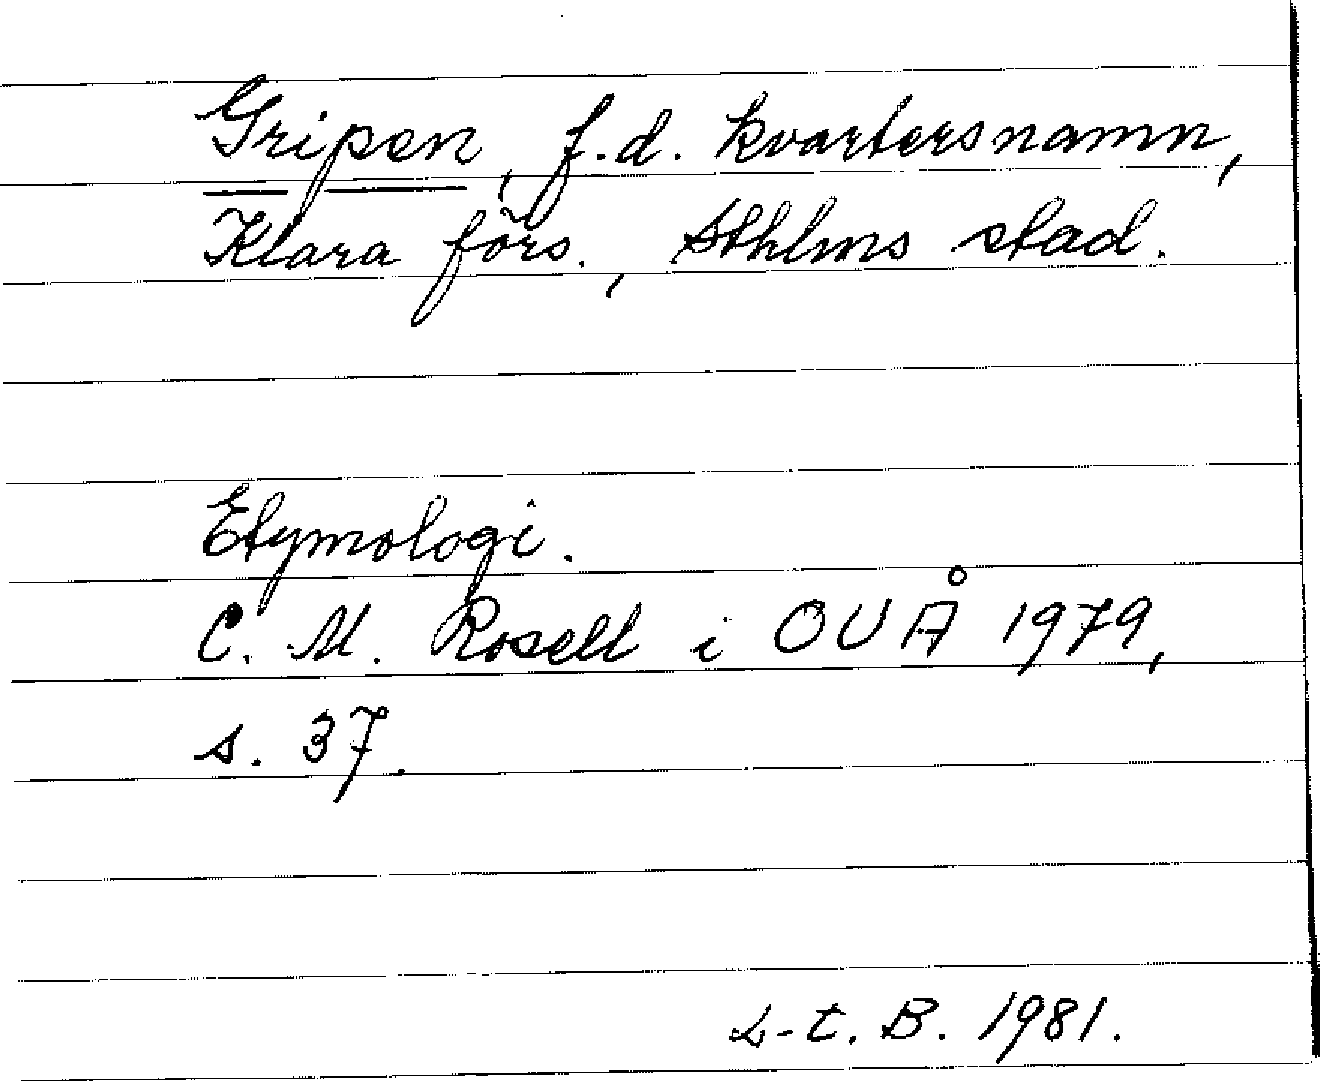 Gripen, f.d. kvartersnamn,
Klara förs., Sthlms stad.
Etymologi.
C. M. Rosell i OUÅ 1979,
s. 37.
L-t. B. 1981.